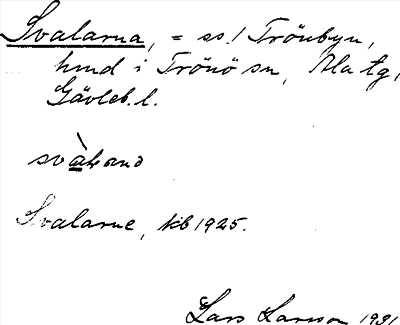 Svalarna, = ss. / Trönbyn,
hmd i Trönö sn, Ala tg,
Gävleb. l.
Svalarne, kb 1925.
Lars Larsson 1931